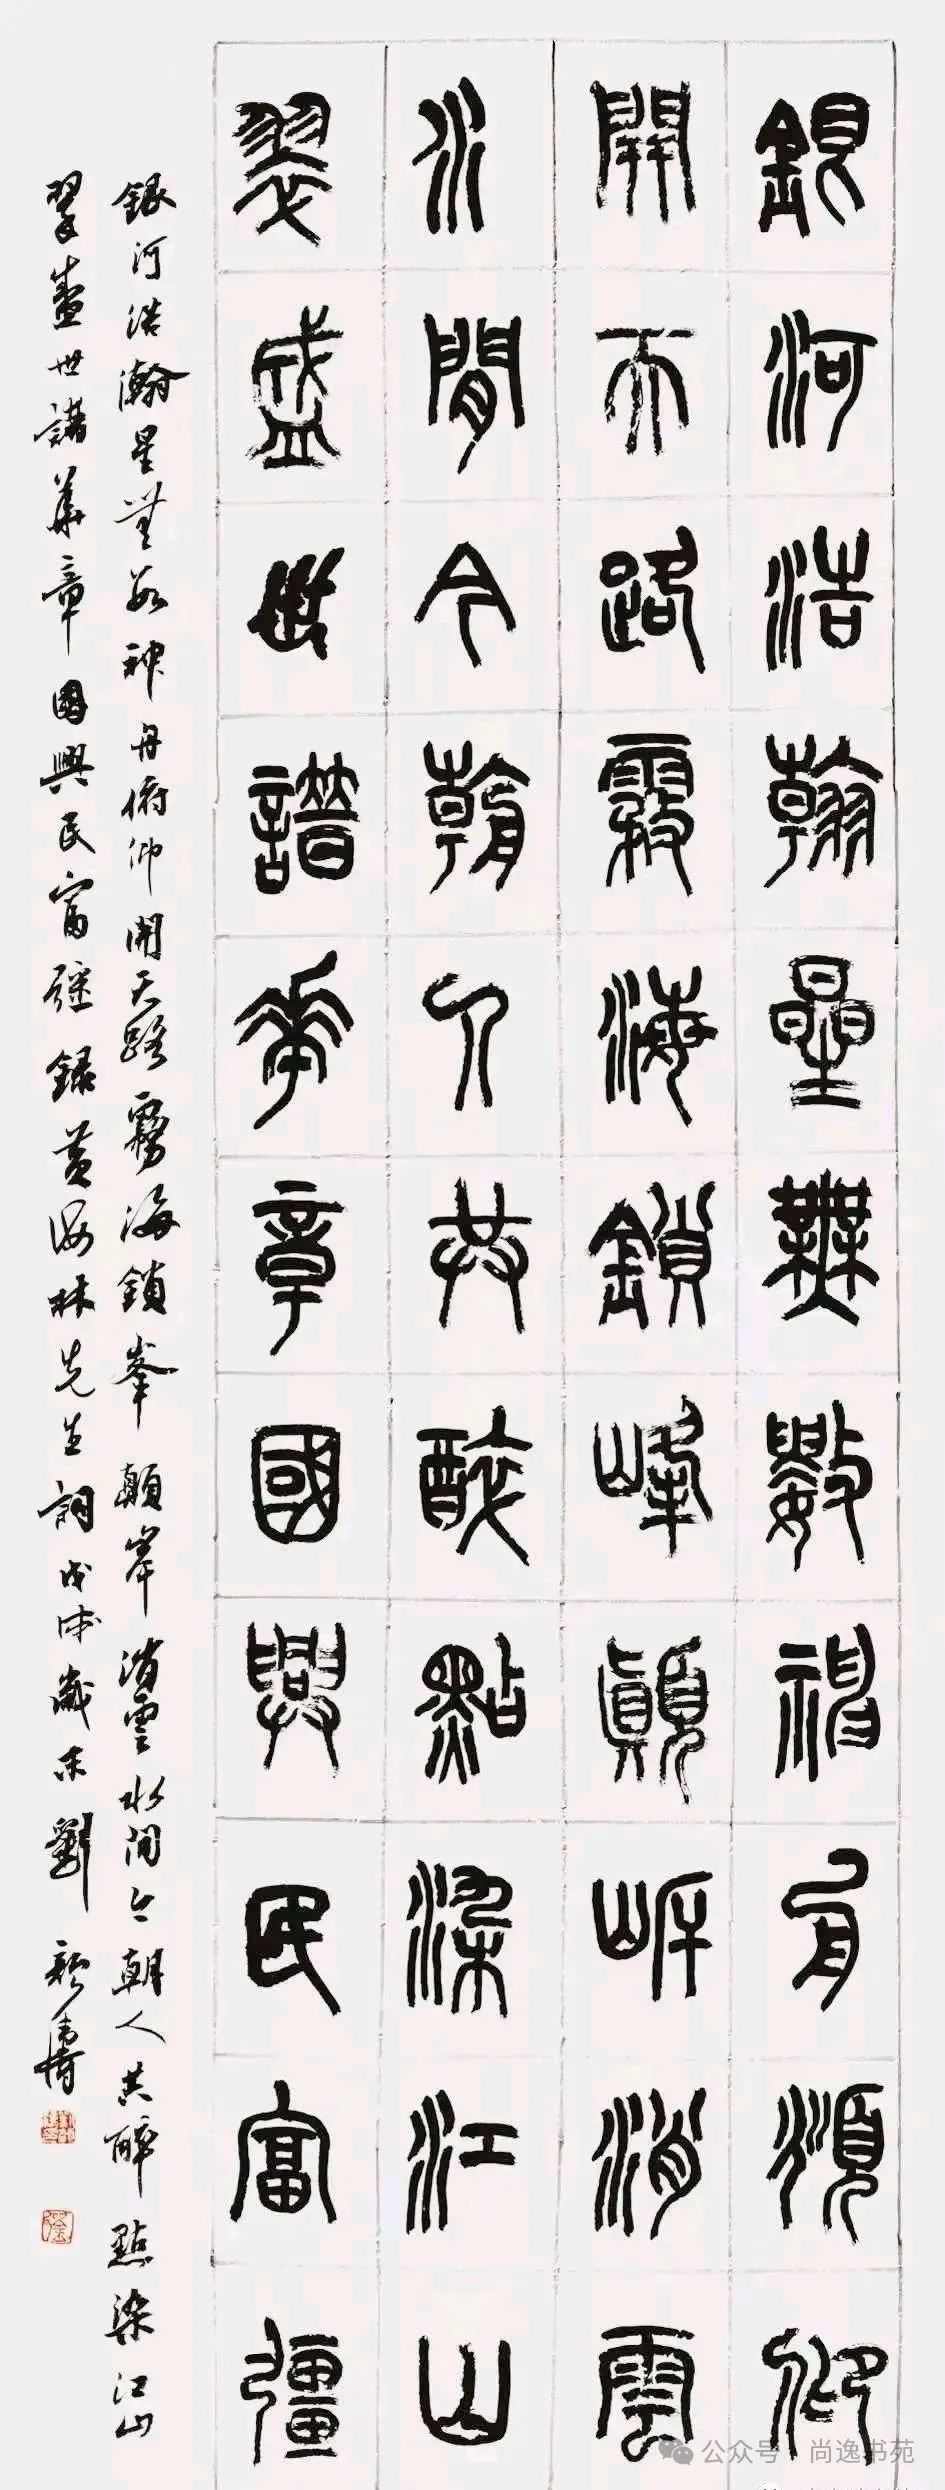 銀河浩翰星無數神舟頫仰
開天路霧海鎖峰顛岸消雲
水間今朝人共醉點染江山
翠盛世譜華章國興民富彊
銀河浩瀚星無數神舟俯仰開天路霧海鎖峯顛岸消雲水間今朝人共醉點染江山
翠盛世譜華章國興民富強錄黃林先生詞戊戌歲末劉顏濤
公众号 · 尚逸书苑